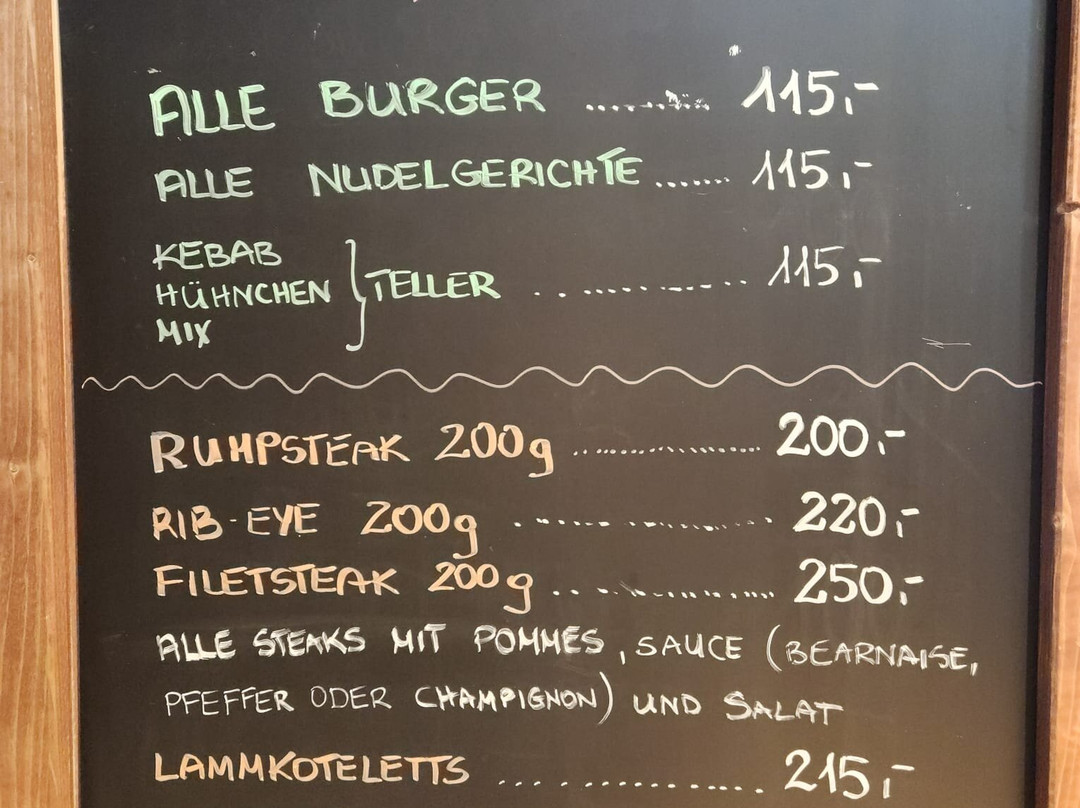 ALLE BURGER ........... 115,-
ALLE NUDELGERICHTE ....... 115,-
KEBAB
HÜHNCHEN } TELLER .............. 115,-
MIX
RUMPSTEAK 200g ..................... 200,-
RIB-EYE 200g ................. 220,-
FILETSTEAK 200g .................. 250,-
ALLE STEAKS MIT POMMES, SAUCE (BEARNAISE,
PFEFFER ODER CHAMPIGNON) UND SALAT
LAMMKOTELETTS .................. 215,-